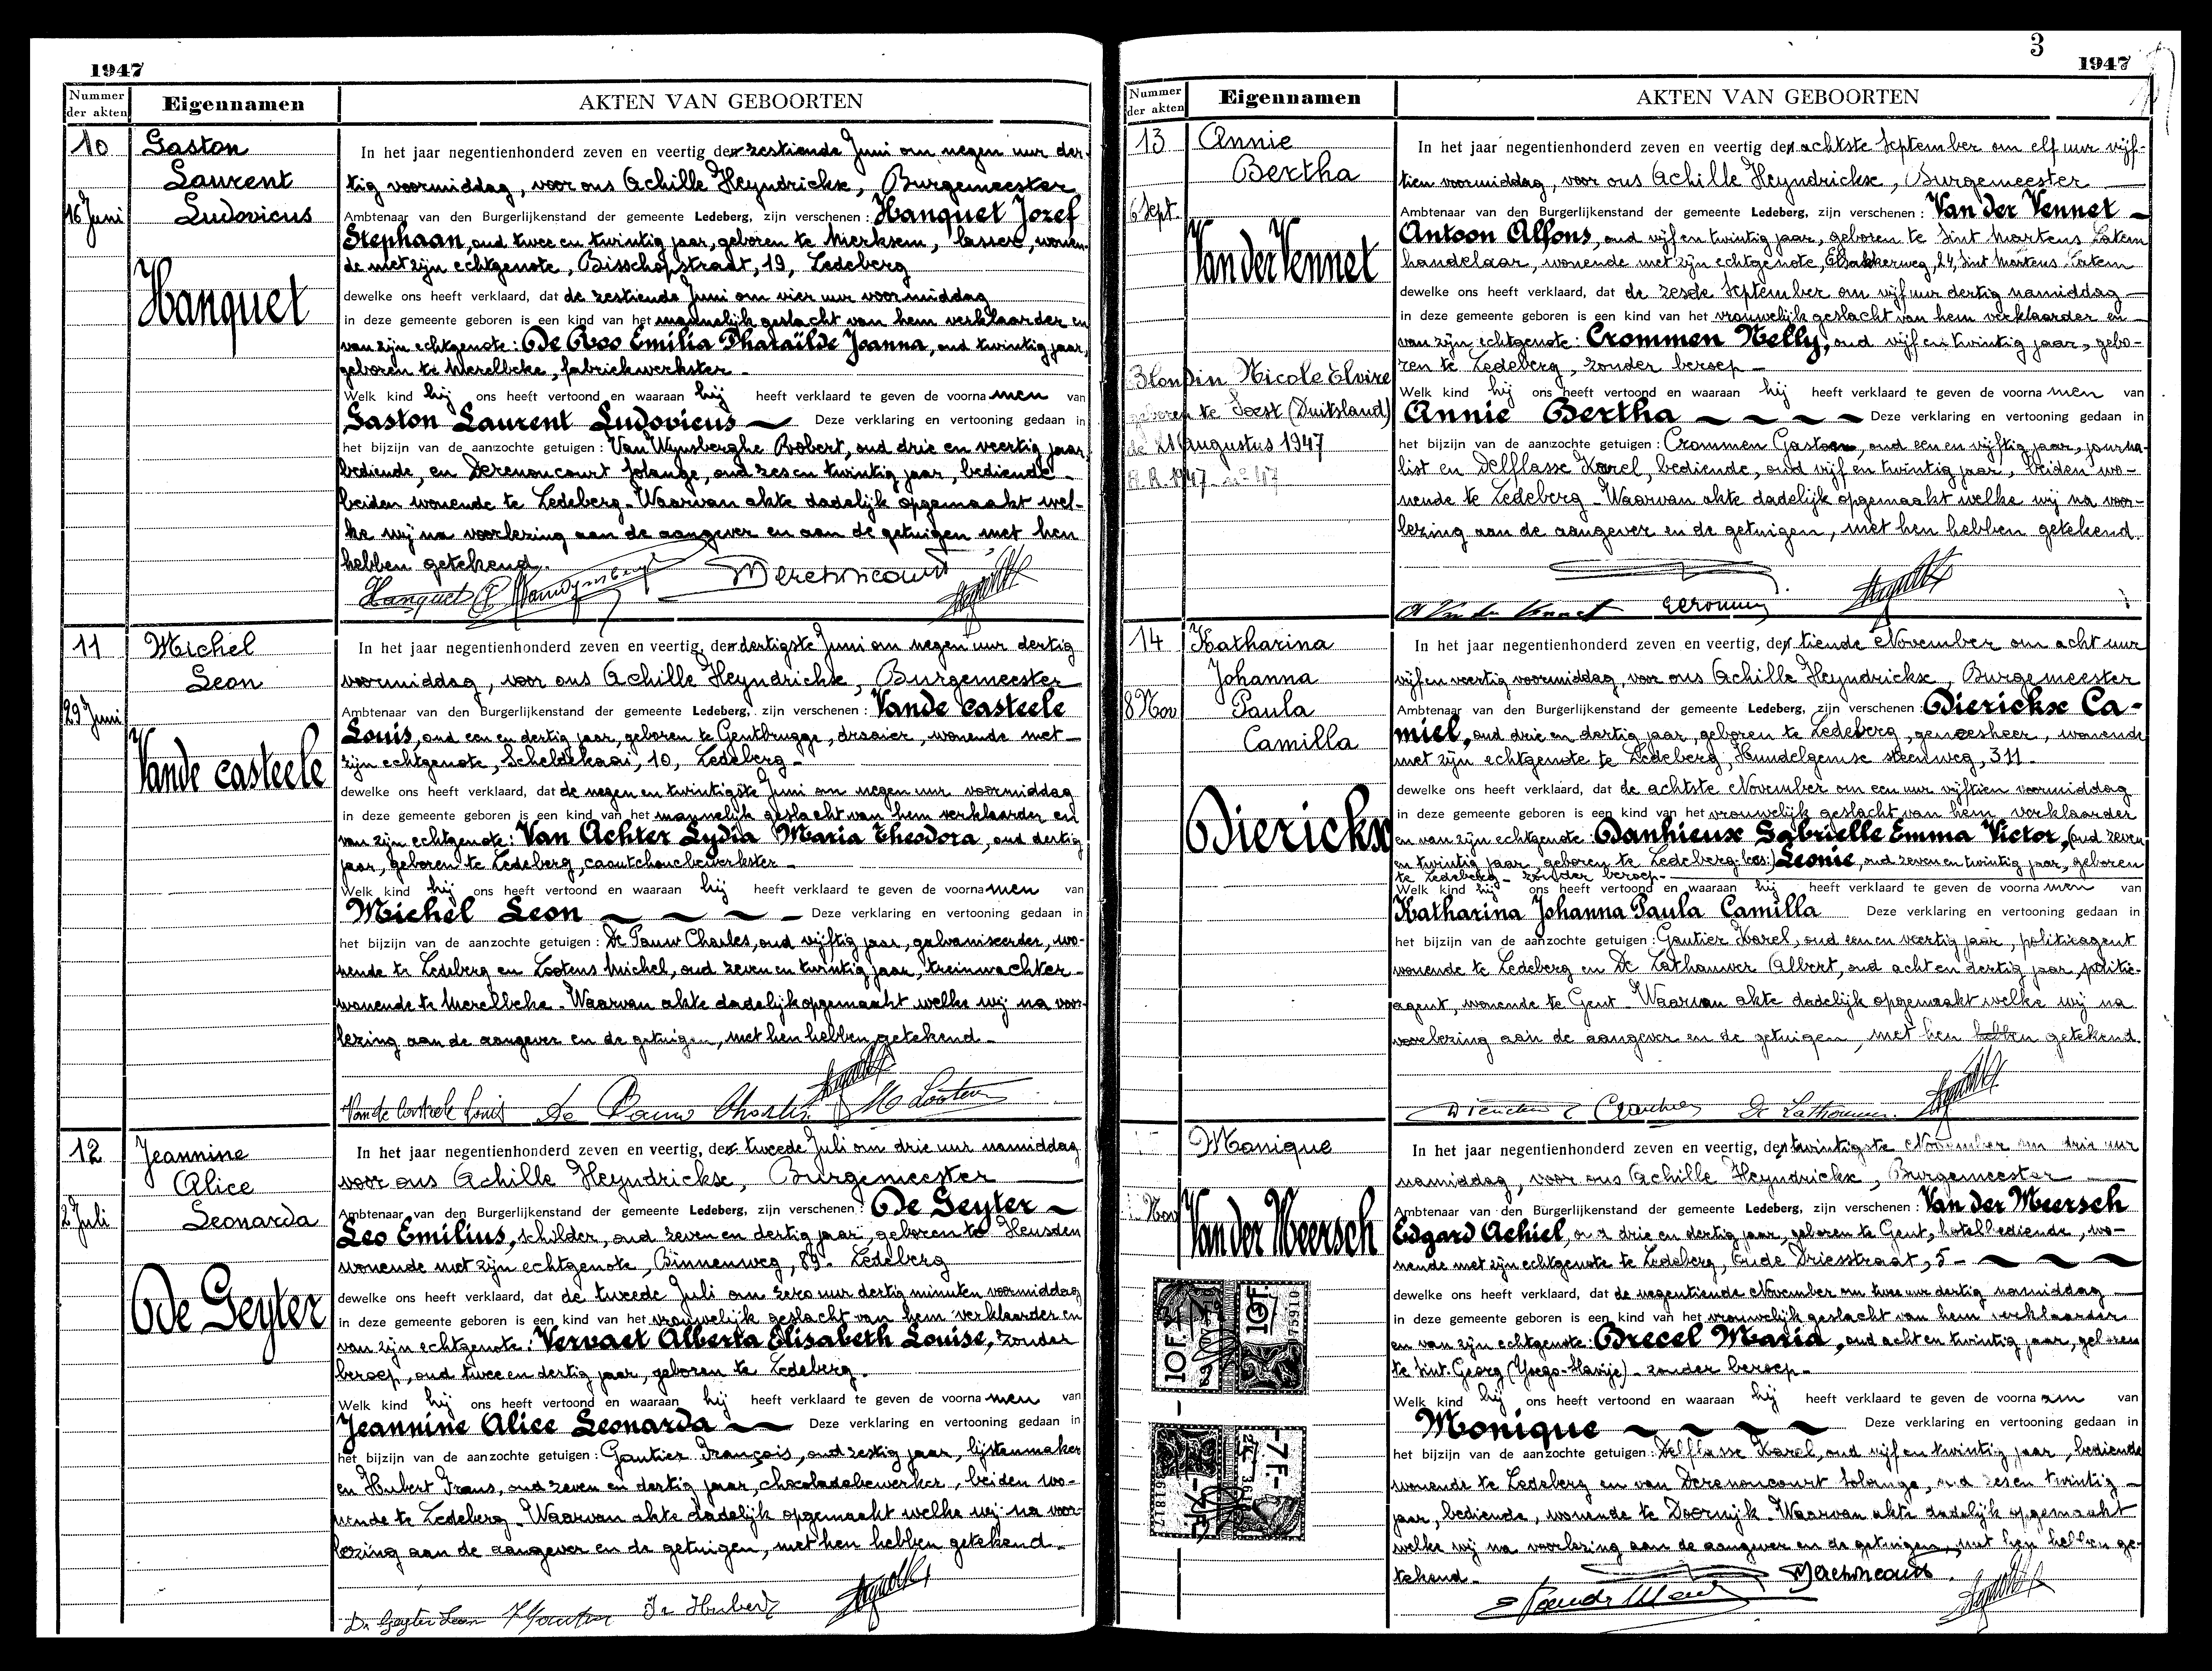 1947
Nummer der akten
Eigennamen
AKTEN VAN GEBOORTEN
10
16 Juni
Gaston
Laurent
Ludovicus
Hanquet
In het jaar negentienhonderd zeven en veertig den zestiende Juni om negen uur der-
tig voormiddag, voor ons Achille Heyndrickx, Burgemeester
Ambtenaar van den Burgerlijkenstand der gemeente Ledeberg, zijn verschenen: Hanquet Jozef
Stephaan, oud twee en twintig jaar, geboren te Merksem, lasser, wonen-
de met zijn echtgenote, Bisschopstraat, 19, Ledeberg
dewelke ons heeft verklaard, dat de zestiende Juni om vier uur voormiddag
in deze gemeente geboren is een kind van het mannelijk geslacht van hem verklaarder en
van zijn echtgenote: De Roo Emilia Pharaïlde Joanna, oud twintig jaar,
geboren te Merelbeke, fabriekwerkster -
Welk kind hij ons heeft vertoond en waaraan hij heeft verklaard te geven de voornamen van
Gaston Laurent Ludovicus Deze verklaring en vertooning gedaan in
het bijzijn van de aanzochte getuigen: Van Wynsberghe Robert, oud drie en veertig jaar
bediende, en Derenoncourt Solange, oud zes en twintig jaar, bediende -
beiden wonende te Ledeberg - Waarvan akte dadelijk opgemaakt wel-
ke wij na voorlezing aan de aangever en aan de getuigen met hen
hebben getekend.
Hanquet Derenoncourt
11
29 Juni
Michel
Leon
Vande casteele
In het jaar negentienhonderd zeven en veertig, den dertigste Juni om negen uur dertig
voormiddag, voor ons Achille Heyndrickx, Burgemeester
Ambtenaar van den Burgerlijkenstand der gemeente Ledeberg, zijn verschenen: Vande casteele
Louis, oud een en dertig jaar, geboren te Gentbrugge, draaier, wonende met
zijn echtgenote, Scheldekaai, 10, Ledeberg -
dewelke ons heeft verklaard, dat de negen en twintigste Juni om negen uur voormiddag
in deze gemeente geboren is een kind van het mannelijk geslacht van hem verklaarder en
van zijn echtgenote: Van Achter Lydia Maria Theodora, oud dertig
jaar, geboren te Ledeberg, caoutchoucbewerkster -
Welk kind hij ons heeft vertoond en waaraan hij heeft verklaard te geven de voornamen van
Michel Leon Deze verklaring en vertooning gedaan in
het bijzijn van de aanzochte getuigen: De Pauw Charles, oud vijftig jaar, galvaniseerder, wo-
nende te Ledeberg en Lootens Michel, oud zeven en twintig jaar, treinwachter -
wonende te Merelbeke - Waarvan akte dadelijk opgemaakt welke wij na voor-
lezing aan de aangever en de getuigen, met hen hebben getekend -
Vande Casteele Louis De Pauw Charles M Lootens
12
2 Juli
Jeannine
Alice
Leonarda
De Geyter
In het jaar negentienhonderd zeven en veertig, den tweede Juli om drie uur namiddag
voor ons Achille Heyndrickx, Burgemeester
Ambtenaar van den Burgerlijkenstand der gemeente Ledeberg, zijn verschenen: De Geyter
Leo Emilius, schilder, oud zeven en dertig jaar, geboren te Heusden
wonende met zijn echtgenote, Binnenweg, 89 - Ledeberg
dewelke ons heeft verklaard, dat de tweede Juli om zero uur dertig minuten voormiddag
in deze gemeente geboren is een kind van het vrouwelijk geslacht van hem verklaarder en
van zijn echtgenote: Vervaet Alberta Elisabeth Louise, zonder
beroep, oud twee en dertig jaar, geboren te Ledeberg.
Welk kind hij ons heeft vertoond en waaraan hij heeft verklaard te geven de voornamen van
Jeannine Alice Leonarda Deze verklaring en vertooning gedaan in
het bijzijn van de aanzochte getuigen: Gautier François, oud zestig jaar, lijstenmaker
en Hubert Frans, oud zeven en dertig jaar, chocoladebewerker, beiden wo-
nende te Ledeberg - Waarvan akte dadelijk opgemaakt welke wij na voor-
lezing aan de aangever en de getuigen, met hen hebben getekend -
De Geyter Leon Fr Hubert
3
1947
Nummer der akten
Eigennamen
AKTEN VAN GEBOORTEN
13
6 Sept.
Annie
Bertha
Van der Vennet
Blondin Nicole Elvire
geboren te Soest (Duitsland)
de 21 Augustus 1947
A.R. 1947 - n° 47
In het jaar negentienhonderd zeven en veertig den achtste September om elf uur vijf-
tien voormiddag, voor ons Achille Heyndrickx, Burgemeester
Ambtenaar van den Burgerlijkenstand der gemeente Ledeberg, zijn verschenen: Van der Vennet
Antoon Alfons, oud vijf en twintig jaar, geboren te Sint Martens Latem
handelaar, wonende met zijn echtgenote, Elsakkerweg, 24, Sint Martens Latem
dewelke ons heeft verklaard, dat de zesde September om vijf uur dertig namiddag
in deze gemeente geboren is een kind van het vrouwelijk geslacht van hem verklaarder en
van zijn echtgenote: Crommen Nelly, oud vijf en twintig jaar, gebo-
ren te Ledeberg, zonder beroep -
Welk kind hij ons heeft vertoond en waaraan hij heeft verklaard te geven de voornamen van
Annie Bertha Deze verklaring en vertooning gedaan in
het bijzijn van de aanzochte getuigen: Crommen Gaston, oud een en vijftig jaar, journa-
list en Delflasse Karel, bediende, oud vijf en twintig jaar, beiden wo-
nende te Ledeberg - Waarvan akte dadelijk opgemaakt welke wij na voor-
lezing aan de aangever en de getuigen, met hen hebben getekend.
A Van der Vennet
14
8 Nov
Katharina
Johanna
Paula
Camilla
Dierickx
In het jaar negentienhonderd zeven en veertig, den tiende November om acht uur
vijf en veertig voormiddag, voor ons Achille Heyndrickx, Burgemeester
Ambtenaar van den Burgerlijkenstand der gemeente Ledeberg, zijn verschenen: Dierickx Ca-
miel, oud drie en dertig jaar, geboren te Ledeberg, geneesheer, wonende
met zijn echtgenote te Ledeberg, Hundelgemse steenweg, 311 -
dewelke ons heeft verklaard, dat de achtste November om een uur vijftien voormiddag
in deze gemeente geboren is een kind van het vrouwelijk geslacht van hem verklaarder
en van zijn echtgenote: Danhieux Gabrielle Emma Victor, (oud zeven
en twintig jaar, geboren te Ledeberg Leonie, oud zeven en twintig jaar, geboren
te Ledeberg - zonder beroep -
Welk kind hij ons heeft vertoond en waaraan hij heeft verklaard te geven de voornamen van
Katharina Johanna Paula Camilla Deze verklaring en vertooning gedaan in
het bijzijn van de aanzochte getuigen: Gautier Karel, oud een en veertig jaar, politieagent
wonende te Ledeberg en De Lathauwer Albert, oud acht en dertig jaar, politie-
agent, wonende te Gent - Waarvan akte dadelijk opgemaakt welke wij na
voorlezing aan de aangever en de getuigen, met hen hebben getekend.
Monique
Nov
Van der Meersch
10F.
10F.
75910
7F.-
-7F.-
In het jaar negentienhonderd zeven en veertig, den twintigste November om drie uur
namiddag, voor ons Achille Heyndrickx, Burgemeester
Ambtenaar van den Burgerlijkenstand der gemeente Ledeberg, zijn verschenen: Van der Meersch
Edgard Achiel, oud drie en dertig jaar, geboren te Gent, hotelbediende, wo-
nende met zijn echtgenote te Ledeberg, Oude Driesstraat, 5 -
dewelke ons heeft verklaard, dat de negentiende November om twee uur dertig namiddag
in deze gemeente geboren is een kind van het vrouwelijk geslacht van hem verklaarder
en van zijn echtgenote: Brecel Maria, oud acht en twintig jaar, geboren
te Sint. Georg (Yoego-Slavije) - zonder beroep -
Welk kind hij ons heeft vertoond en waaraan hij heeft verklaard te geven de voornaam van
Monique Deze verklaring en vertooning gedaan in
het bijzijn van de aanzochte getuigen: Delflasse Karel, oud vijf en twintig jaar, bediende
wonende te Ledeberg en van Derenoncourt Solange, oud zes en twintig
jaar, bediende, wonende te Doornijk - Waarvan akte dadelijk opgemaakt
welke wij na voorlezing aan de aangever en de getuigen, met hen hebben ge-
tekend -
Derenoncourt